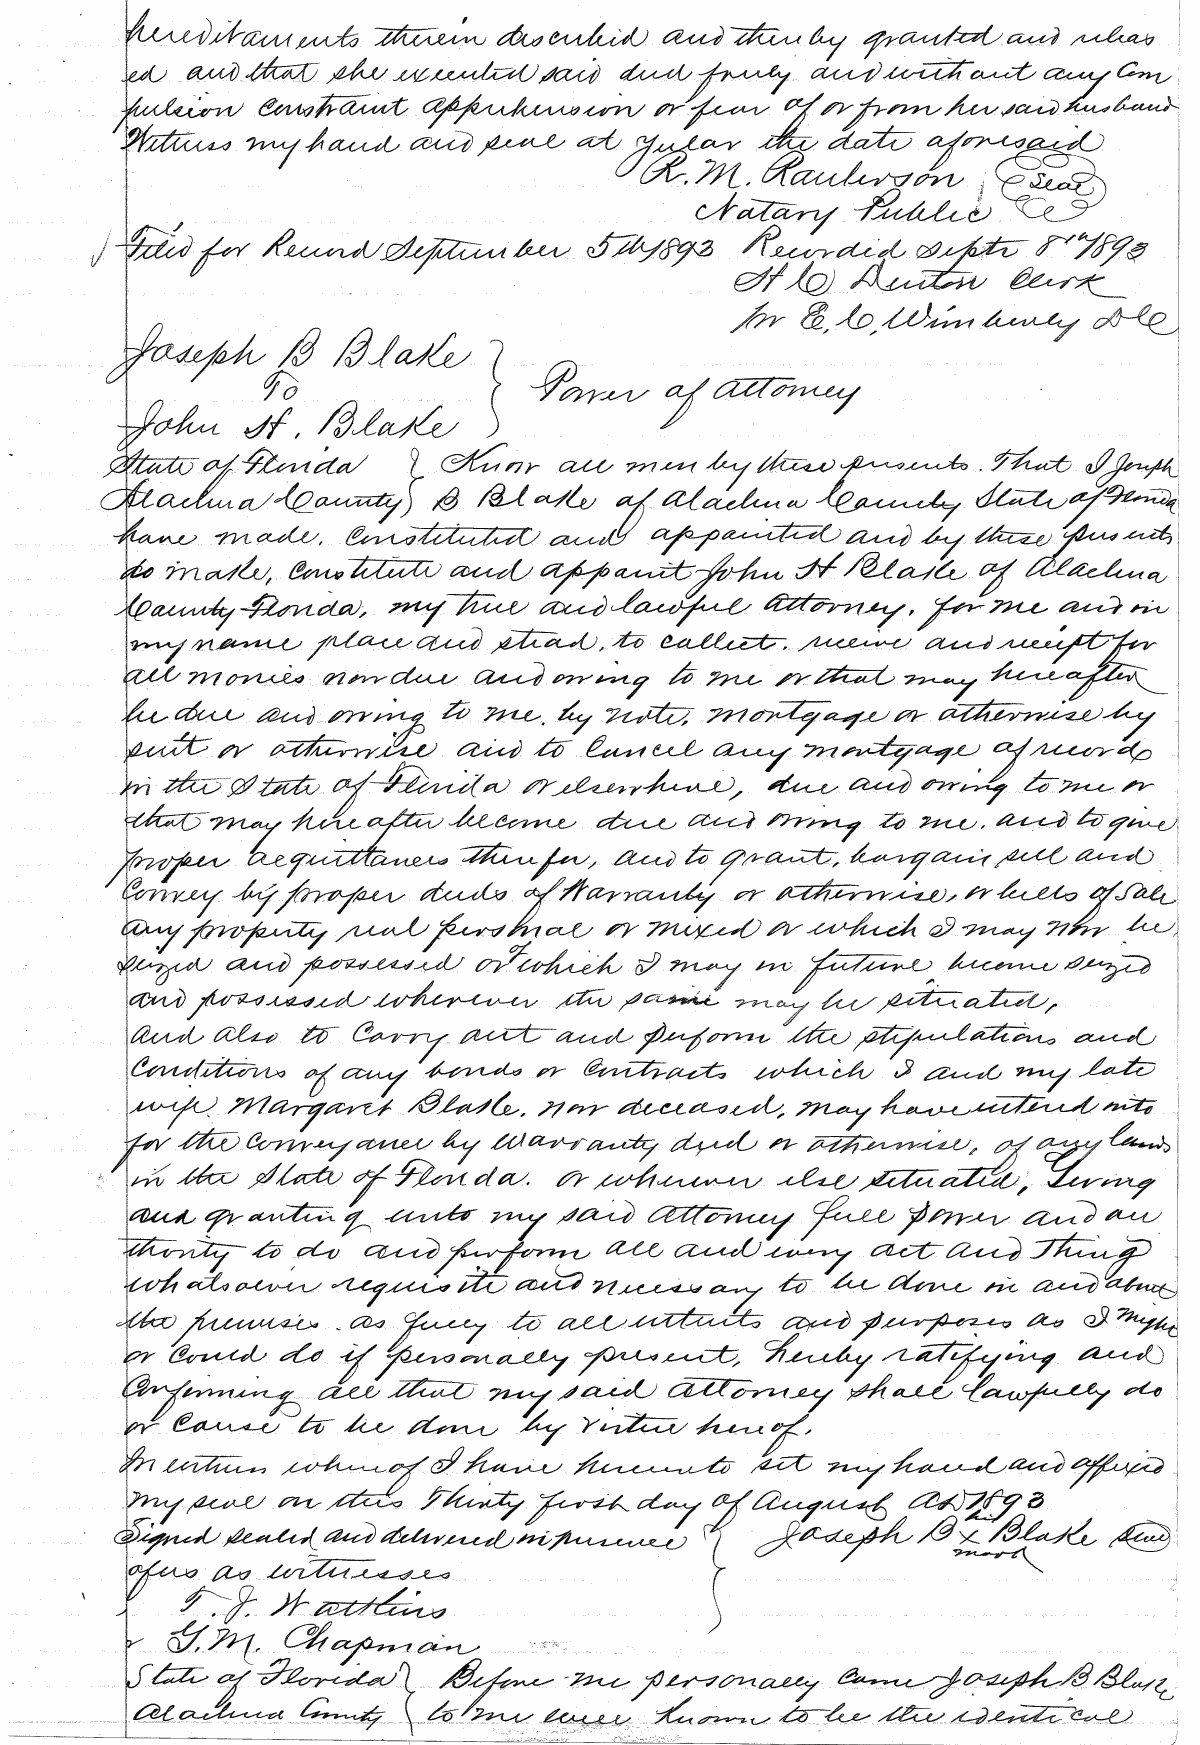 hereditaments therein described and thereby granted and releas
ed and that she executed said deed freely and without any Com
pulsion Constraint apprehension or fear of or from her said husband
Witness my hand and seal at Jular the date aforesaid
R. M. Raulerson (Seal)
Notary Public
Filed for Record September 5th 1893 Recorded Septr 8th 1893
H C Denton Clerk
Pr E. C. Wimberly D C
Joseph B Blake
To
Power of Attorney
John H. Blake
State of Florida } Know all men by these presents. That I Joseph
Alachua County } B Blake of Alachua County State of Florida
have made, Constituted and appointed and by these presents
do make, Constitute and appoint John H Blake of Alachua
County Florida, my true and lawful Attorney, for me and in
my name place and stead, to collect. receive and receipt for
all monies now due and owing to me or that may hereafter
be due and owing to me, by note, mortgage or otherwise by
suit or otherwise and to Cancel any mortgage of record
in the State of Florida or elsewhere, due and owing to me or
that may hereafter become due and owing to me, and to give
proper acquittances therefor, and to grant, bargain sell and
Convey by proper deeds of Warranty or otherwise, or bills of Sale
any property real personal or mixed or which I may now be
seized and possessed or which I may in future become seized
and possessed wherever the same may be situated,
And also to Carry out and perform the stipulations and
Conditions of any bonds or Contracts which I and my late
wife Margaret Blake, now deceased, may have entered into
for the Conveyance by Warranty deed or otherwise, of any lands
in the State of Florida. or wherever else situated, Giving
and granting unto my said Attorney full power and au
thority to do and perform all and every act and Thing
whatsoever requisite and necessary to be done in and about
the premises as fully to all intents and purposes as I might
or Could do if personally present, hereby ratifying and
Confirming all that my said Attorney shall lawfully do
or Cause to be done by virtue hereof.
In witness whereof I have hereunto set my hand and affixed
my seal on this Thirty first day of August AD 1893
his
Signed sealed and delivered in presence } Joseph B x Blake Seal
mark
of us as witnesses
T. J. Watkins
G. M. Chapman
State of Florida } Before me personally Came Joseph B Blake
Alachua County } to me well known to be the identical